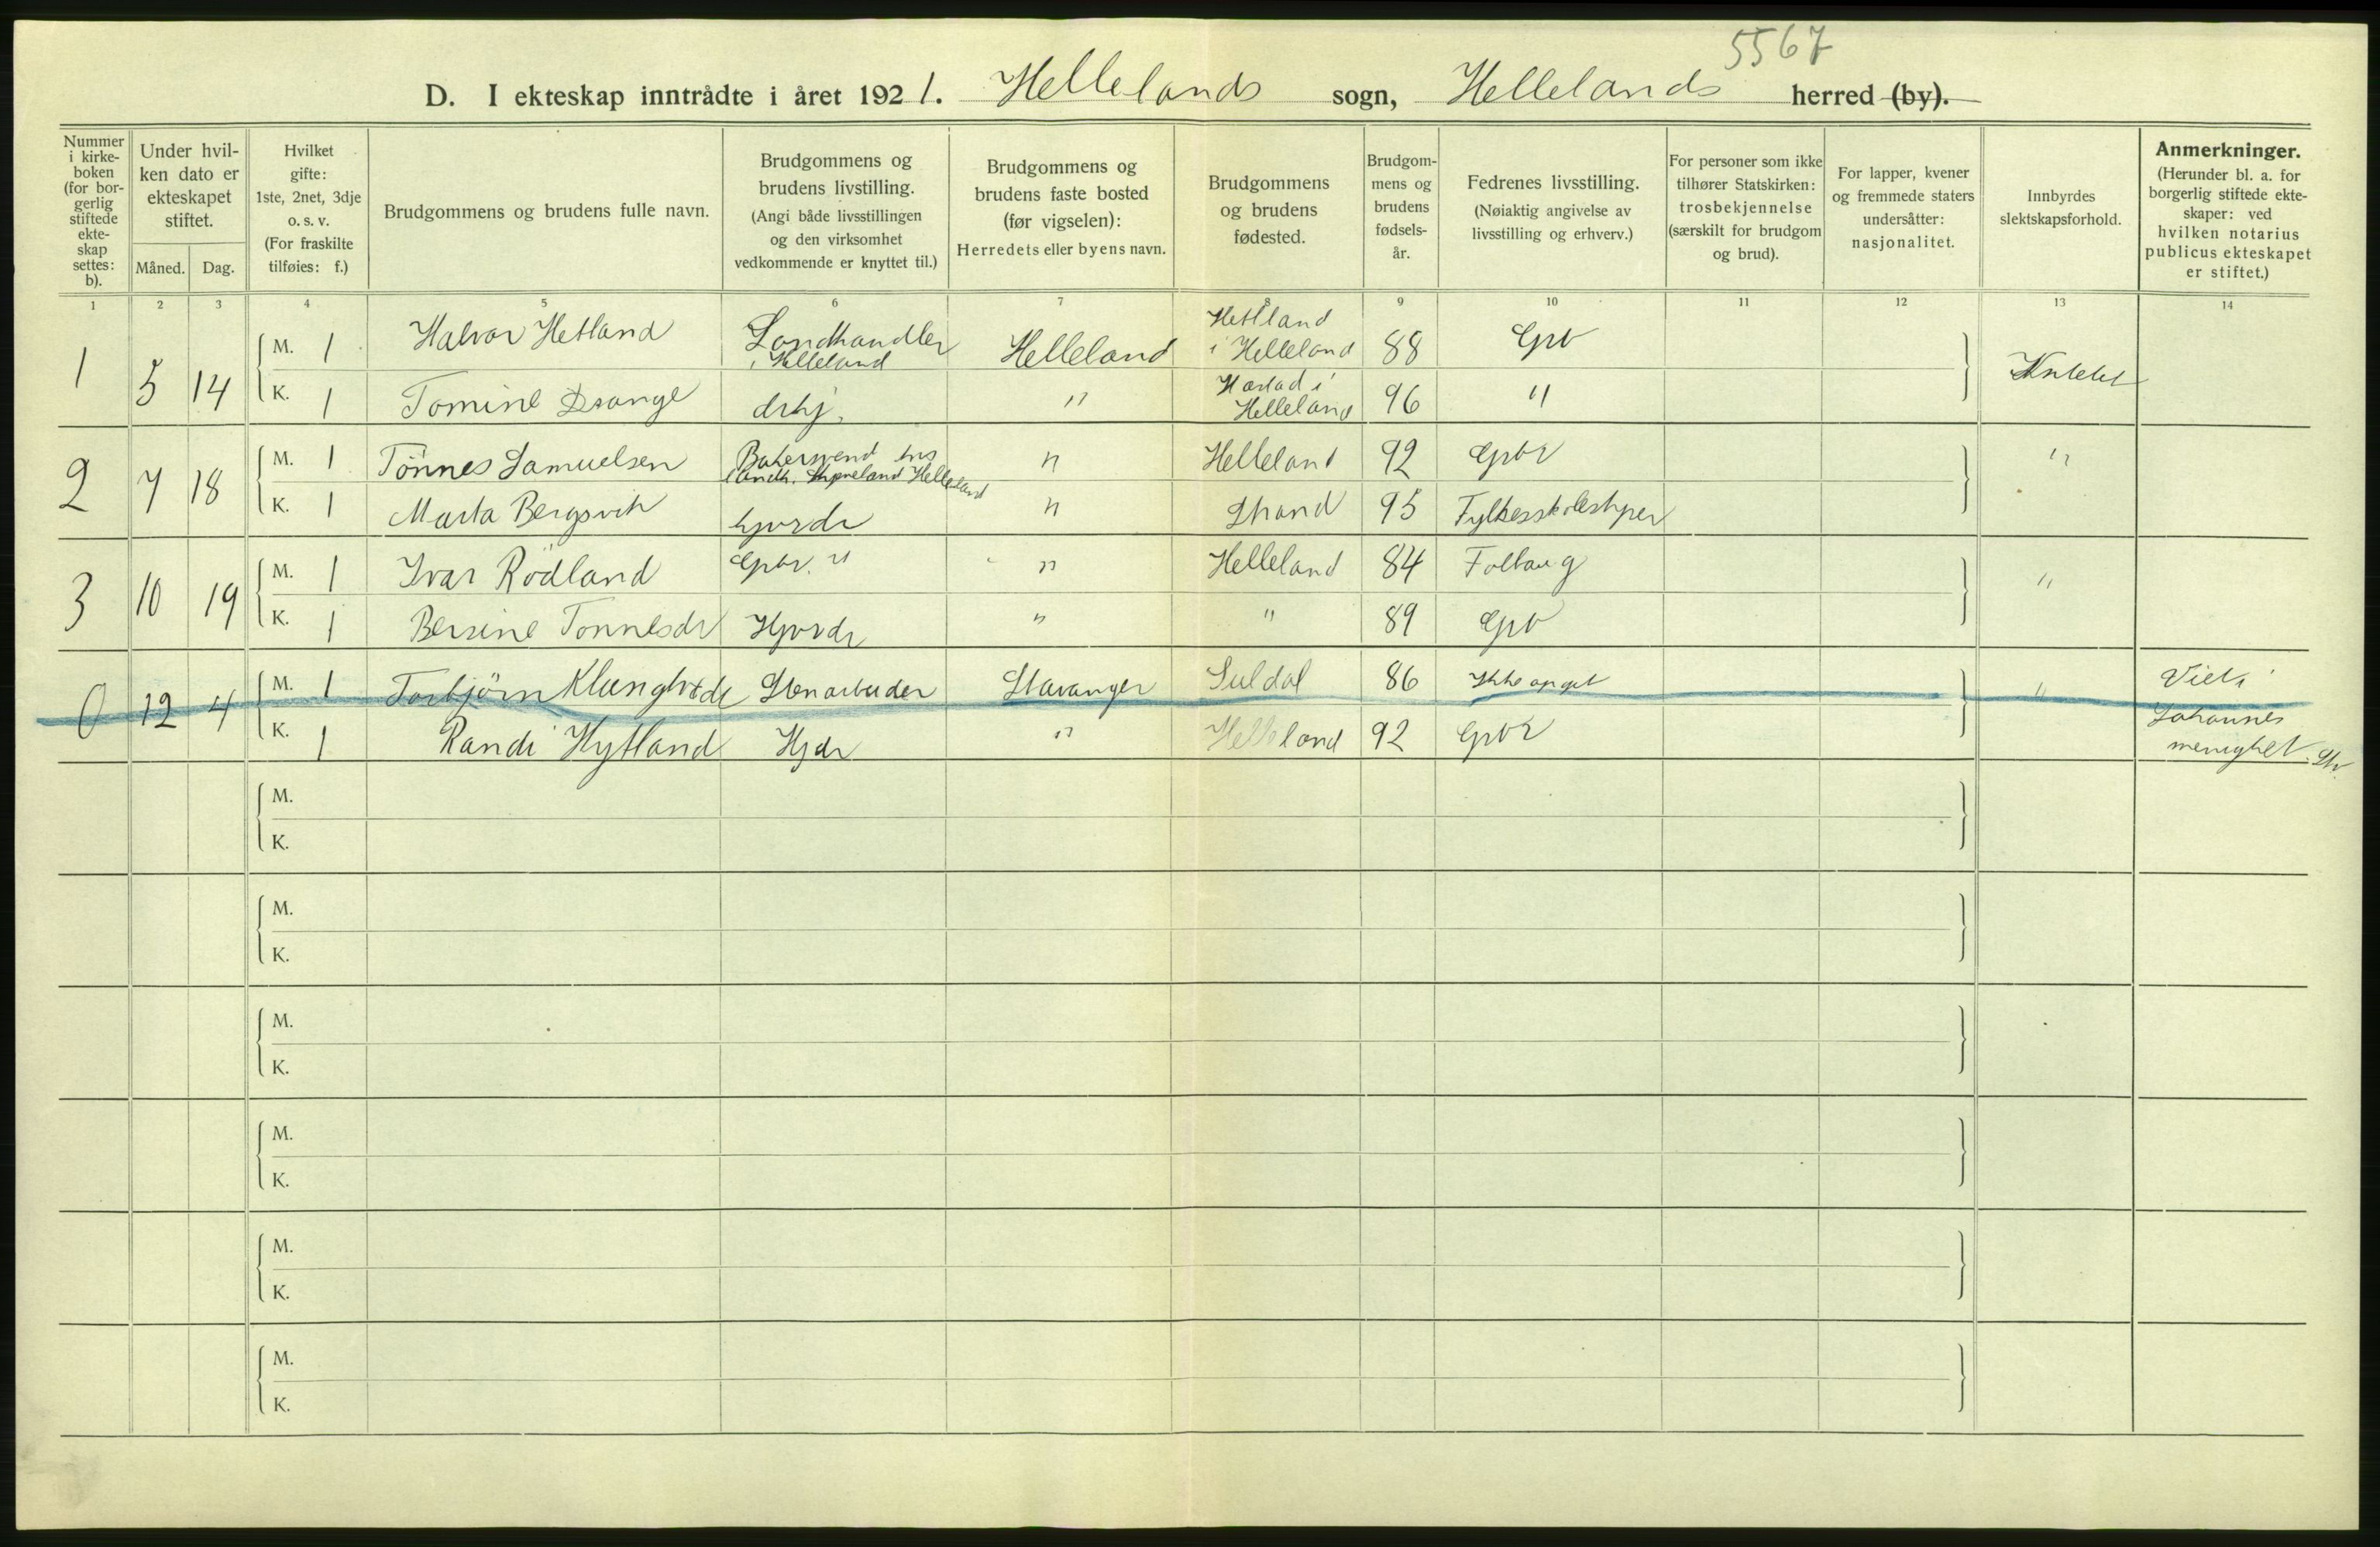 5567
D. I ekteskap inntrådte i året 1921. Hellelands sogn, Hellelands herred (by).
Nummer i kirkeboken (for borgerlig stiftede ekteskap settes: b).
Under hvilken dato er ekteskapet stiftet.
Måned. Dag.
Hvilket gifte: 1ste, 2net, 3dje o. s. v. (For fraskilte tilføies: f.)
Brudgommens og brudens fulle navn.
Brudgommens og brudens livstilling. (Angi både livsstillingen og den virksomhet vedkommende er knyttet til.)
Brudgommens og brudens faste bosted (før vigselen): Herredets eller byens navn.
Brudgommens og brudens fødested.
Brudgommens og brudens fødsels-år.
Fedrenes livsstilling. (Nøiaktig angivelse av livsstilling og erhverv.)
For personer som ikke tilhører Statskirken: trosbekjennelse (særskilt for brudgom og brud).
For lapper, kvener og fremmede staters undersåtter: nasjonalitet.
Innbyrdes slektskapsforhold.
Anmerkninger. (Herunder bl. a. for borgerlig stiftede ekteskaper: ved hvilken notarius publicus ekteskapet er stiftet.)
1 2 3 4 5 6 7 8 9 10 11 12 13 14
1 5 14 M. 1 Halvor Hetland Landhandler i Helleland Helleland Hetland i Helleland 88 Gbr
K. 1 Tomine Drange " Helleland 96 "
2 7 18 M. 1 Tönnes Samuelsen Bakersvend hos landh. Helleland " Helleland 92 Gbr "
K. 1 Marta Bergsvik hjordr " Strand 95
3 10 19 M. 1 Ivar Rödland Gbr. " " Helleland 84 Folkaug "
K. 1 Bersine Tonnesdr Hjordr " " 89 Gbr
0 12 4 M. 1 Torbjörn Stenarbeider Stavanger Suldal 86 Ikke opgit " Viet i
K. 1 Randi Hytland Hjdr " Helleland 92 Gbr Johannes menighet. Stv.
M.
K.
M.
K.
M.
K.
M.
K.
M.
K.
M.
K.